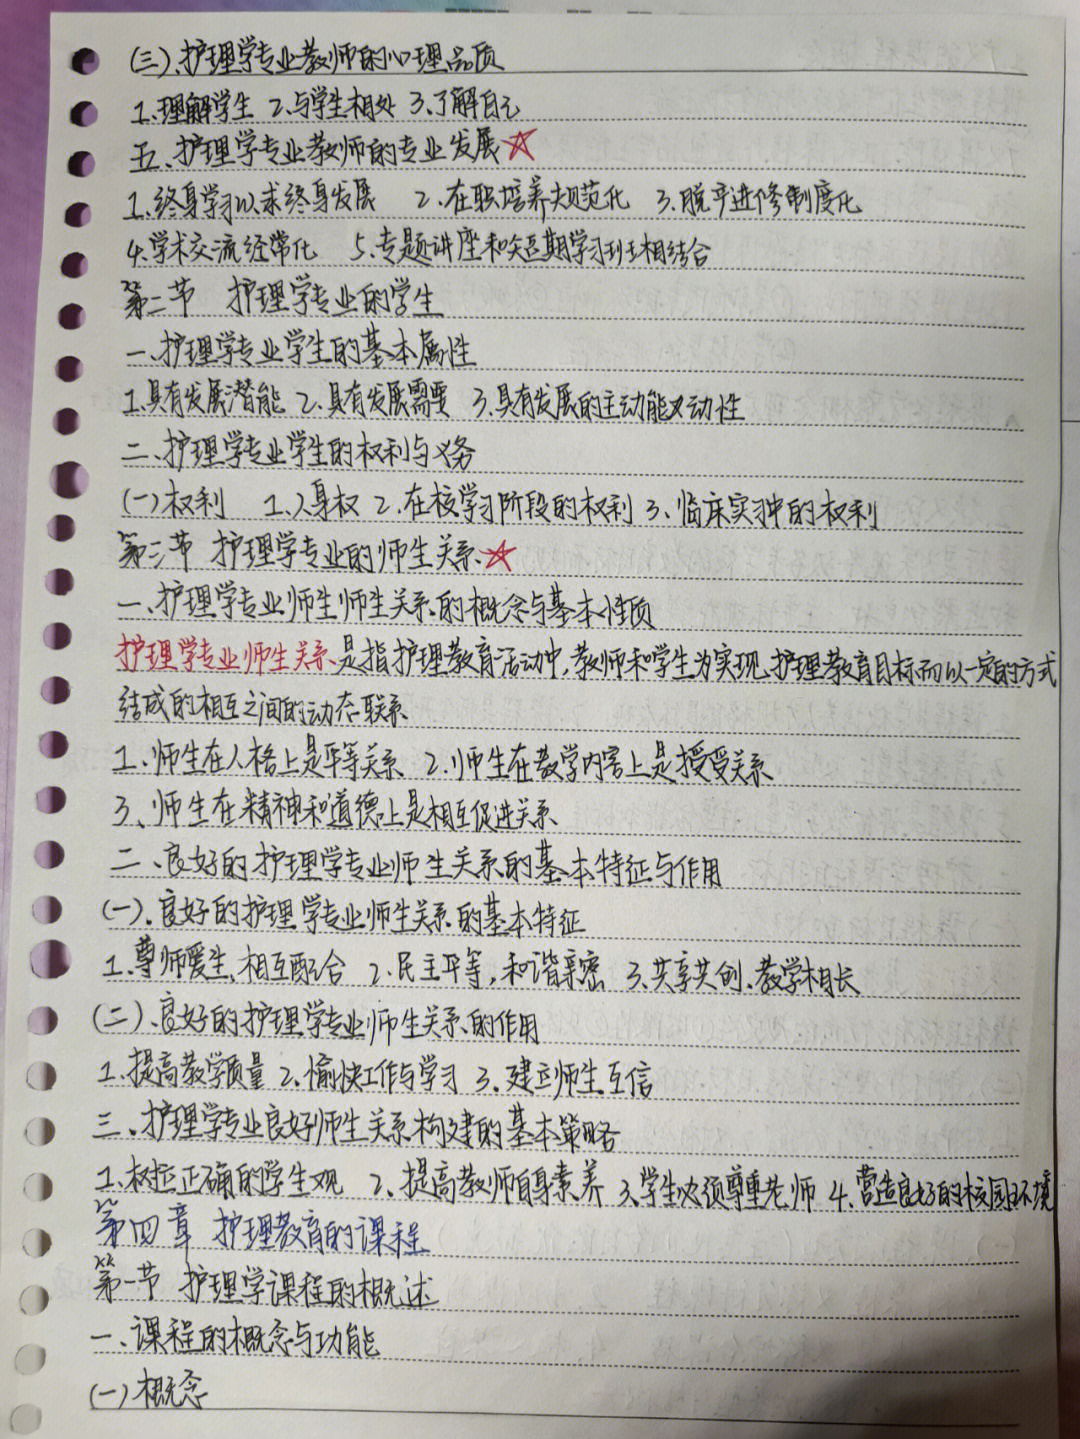 (三)、护理学专业教师的心理品质
1、理解学生 2、与学生相处 3、了解自己
五、护理学专业教师的专业发展☆
1、终身学习以求终身发展 2、在职培养大规范化 3、脱产进修制度化
4、学术交流经常化 5、专题讲座和短期学习班相结合
第二节 护理学专业的学生
一、护理学专业学生的基本属性
1、具有发展潜能 2、具有发展需要 3、具有发展的主动能动性
二、护理学专业学生的权利与义务
(一)权利 1、人身权 2、在校学习阶段的权利 3、临床实习中的权利
第三节 护理学专业的师生关系☆
一、护理学专业师生师生关系的概念与基本性质
护理学专业师生关系是指护理教育活动中,教师和学生为实现护理教育目标而以一定的方式
结成的相互之间的动态联系
1、师生在人格上是平等关系 2、师生在教学内容上是授受关系
3、师生在精神和道德上是相互促进关系
二、良好的护理学专业师生关系的基本特征与作用
(一)、良好的护理学专业师生关系的基本特征
1、尊师爱生,相互配合 2、民主平等,和谐亲密 3、共享共创、教学相长
(二)、良好的护理学专业师生关系的作用
1、提高教学质量 2、愉快工作与学习 3、建立师生互信
三、护理学专业良好师生关系构建的基本策略
1、树立正确的学生观 2、提高教师自身素养 3、学生必须尊重老师 4、营造良好的校园环境
第四章 护理教育的课程
第一节 护理学课程的概述
一、课程的概念与功能
(一)概念